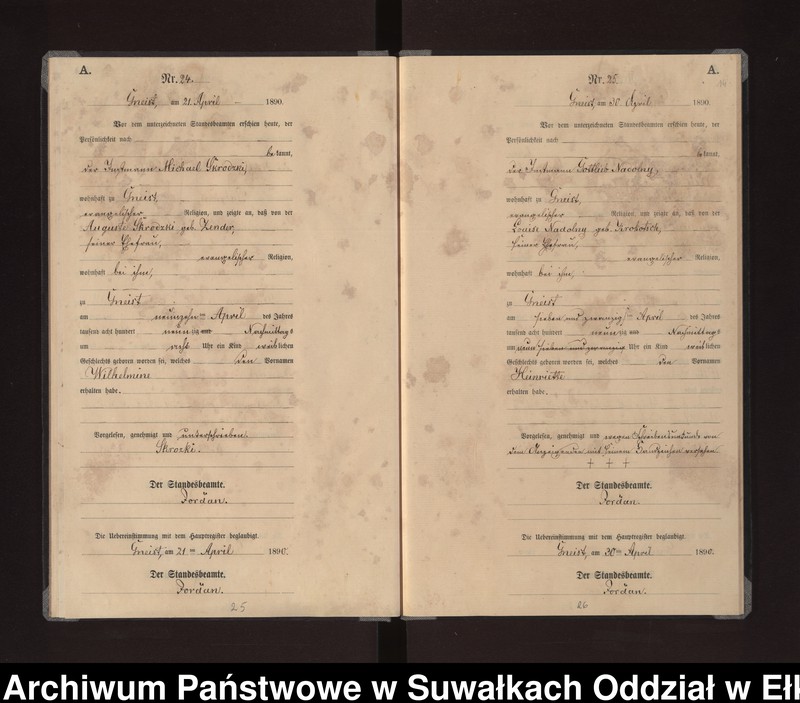 A.
Nr. 24.
Gneist, am 21. April 1890.
Vor dem unterzeichneten Standesbeamten erschien heute, der
Persönlichkeit nach
bekannt,
der Instmann Michael Skrodzki,
wohnhaft zu Gneist,
evangelischer Religion, und zeigte an, daß von der
Auguste Skrodzki geb. Zender,
seiner Ehefrau,
evangelischer Religion,
wohnhaft bei ihm,
zu Gneist
am neunzehn April des Jahres
tausend acht hundert neunzig Nachmittags
um acht Uhr ein Kind weiblichen
Geschlechts geboren worden sei, welches den Vornamen
Wilhelmine
erhalten habe.
Vorgelesen, genehmigt und unterschrieben.
Skrocki.
Der Standesbeamte.
Jordan.
Die Uebereinstimmung mit dem Hauptregister beglaubigt.
Gneist, am 21 ten April 1890.
Der Standesbeamte.
Jordan.
25
A.
Nr. 25.
Gneist, am 30 April 1890.
Vor dem unterzeichneten Standesbeamten erschien heute, der
Persönlichkeit nach
bekannt,
der Instmann Gottlieb Nadolny,
wohnhaft zu Gneist,
evangelischer Religion, und zeigte an, daß von der
Louise Nadolny geb.
seiner Ehefrau,
evangelischer Religion,
wohnhaft bei ihm,
zu Gneist
am sieben und zwanzigsten April des Jahres
tausend acht hundert neunzig Nachmittags
um neun Uhr ein Kind weiblichen
Geschlechts geboren worden sei, welches den Vornamen
Heinriette
erhalten habe.
Vorgelesen, genehmigt und wegen Schreibensunkunde von
dem Anzeigenden mit seinem Handzeichen versehen.
+ + +
Der Standesbeamte.
Jordan.
Die Uebereinstimmung mit dem Hauptregister beglaubigt.
Gneist, am 30 ten April 1890.
Der Standesbeamte.
Jordan.
26
Archiwum Państwowe w Suwałkach Oddział w Ełk